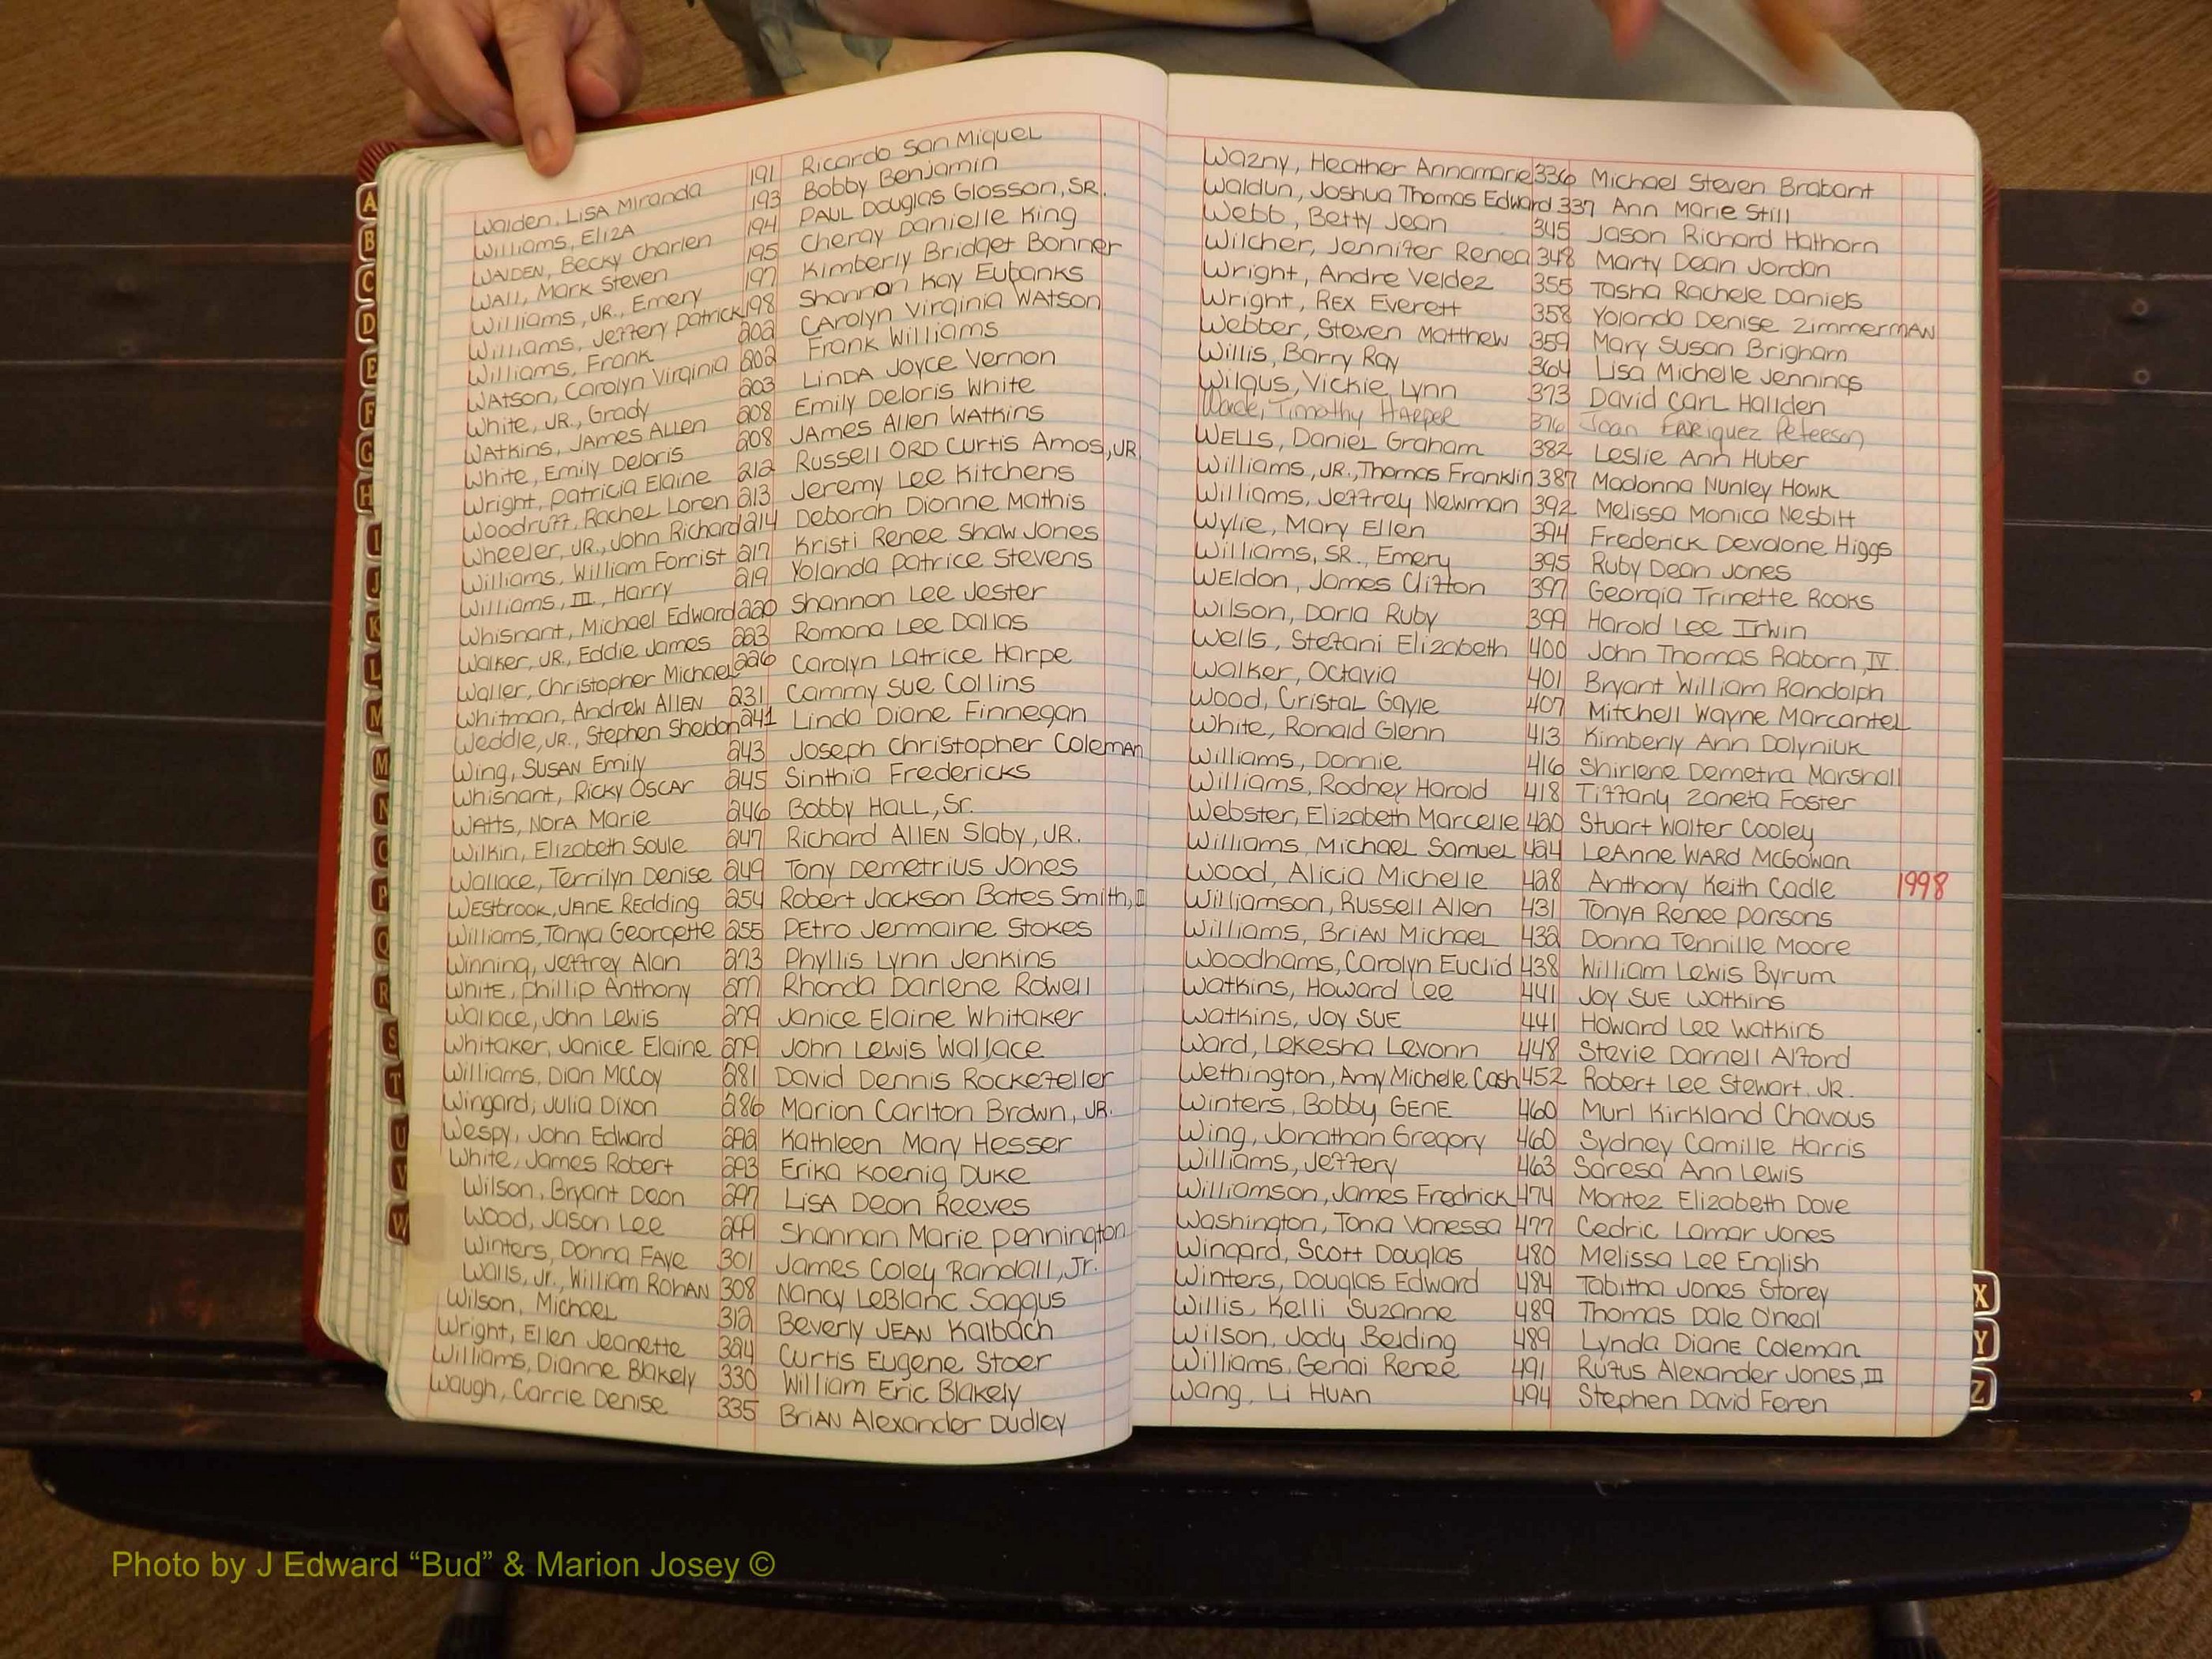 Walden, Lisa Miranda 191 Ricardo San Miquel
Williams, Eliza 193 Bobby Benjamin
Walden, Becky Charlen 194 Paul Douglas Glosson, Sr.
Wall, Mark Steven 195 Cheray Danielle King
Williams, Jr., Emery 197 Kimberly Bridget Bonner
Williams, Jeffery Patrick 198 Shannon Kay Eubanks
Williams, Frank 202 Carolyn Virginia Watson
Watson, Carolyn Virginia 202 Frank Williams
White, Jr., Grady 203 Linda Joyce Vernon
Watkins, James Allen 208 Emily Deloris White
White, Emily Deloris 208 James Allen Watkins
Wright, Patricia Elaine 212 Russell Ord Curtis Amos, Jr
Woodruff, Rachel Loren 213 Jeremy Lee Kitchens
Wheeler, Jr., John Richard 214 Deborah Dionne Mathis
Williams, William Forrist 217 Kristi Renee Shaw Jones
Williams, III, Harry 219 Yolanda Patrice Stevens
Whisnant, Michael Edward 220 Shannon Lee Jester
Walker, Jr., Eddie James 223 Romona Lee Dallas
Waller, Christopher Michael 226 Carolyn Latrice Harpe
Whitman, Andrew Allen 231 Cammy Sue Collins
Weddle, Jr., Stephen Sheldon 241 Linda Diane Finnegan
Wing, Susan Emily 243 Joseph Christopher Coleman
Whisnant, Ricky Oscar 245 Sinthia Fredericks
Watts, Nora Marie 246 Bobby Hall, Sr.
Wilkin, Elizabeth Soule 247 Richard Allen Slaby, Jr.
Wallace, Terrilyn Denise 249 Tony Demetrius Jones
Westbrook, Jane Redding 254 Robert Jackson Bates Smith, II
Williams, Tanya Georgette 255 Petro Jermaine Stokes
Winning, Jeffrey Alan 273 Phyllis Lynn Jenkins
White, Phillip Anthony 277 Rhonda Darlene Rowell
Wallace, John Lewis 279 Janice Elaine Whitaker
Whitaker, Janice Elaine 279 John Lewis Wallace
Williams, Dian McCoy 281 David Dennis Rockefeller
Wingard, Julia Dixon 286 Marion Carlton Brown, Jr.
Wespy, John Edward 292 Kathleen Mary Hesser
White, James Robert 293 Erika Koenig Duke
Wilson, Bryant Deon 297 Lisa Deon Reeves
Wood, Jason Lee 299 Shannan Marie Pennington
Winters, Donna Faye 301 James Coley Randall, Jr.
Walls, Jr., William Rohan 308 Nancy LeBlanc Saggus
Wilson, Michael 312 Beverly Jean Kalbach
Wright, Ellen Jeanette 324 Curtis Eugene Stoer
Williams, Dianne Blakely 330 William Eric Blakely
Waugh, Carrie Denise 335 Brian Alexander Dudley
Wazny, Heather Annamarie 336 Michael Steven Brabant
Waldun, Joshua Thomas Edward 337 Ann Marie Still
Webb, Betty Jean 345 Jason Richard Hathorn
Wilcher, Jennifer Renea 348 Marty Dean Jordan
Wright, Andre Veldez 355 Tasha Rachele Daniels
Wright, Rex Everett 358 Yolanda Denise Zimmerman
Webber, Steven Matthew 359 Mary Susan Brigham
Willis, Barry Ray 364 Lisa Michelle Jennings
Wilgus, Vickie Lynn 373 David Carl Hallden
Wade, Timothy Harper 376 Joan Enriquez Peterson
Wells, Daniel Graham 382 Leslie Ann Huber
Williams, Jr., Thomas Franklin 387 Madonna Nunley Howk
Williams, Jeffrey Newman 392 Melissa Monica Nesbitt
Wylie, Mary Ellen 394 Frederick Devalone Higgs
Williams, Sr., Emery 395 Ruby Dean Jones
Weldon, James Clifton 397 Georgia Trinette Rooks
Wilson, Darla Ruby 399 Harold Lee Irwin
Wells, Stefani Elizabeth 400 John Thomas Raborn, IV
Walker, Octavia 401 Bryant William Randolph
Wood, Cristal Gayle 407 Mitchell Wayne Marcantel
White, Ronald Glenn 413 Kimberly Ann Dolyniuk
Williams, Donnie 416 Shirlene Demetra Marshall
Williams, Rodney Harold 418 Tiffany Zaneta Foster
Webster, Elizabeth Marcelle 420 Stuart Walter Cooley
Williams, Michael Samuel 424 LeAnne Ward McGowan
Wood, Alicia Michelle 428 Anthony Keith Cadle 1998
Williamson, Russell Allen 431 Tonya Renee Parsons
Williams, Brian Michael 432 Donna Tennille Moore
Woodhams, Carolyn Euclid 438 William Lewis Byrum
Watkins, Howard Lee 441 Joy Sue Watkins
Watkins, Joy Sue 441 Howard Lee Watkins
Ward, Lekesha Levonn 448 Stevie Darnell Alford
Wethington, Amy Michelle Cash 452 Robert Lee Stewart, Jr.
Winters, Bobby Gene 460 Murl Kirkland Chavous
Wing, Jonathan Gregory 460 Sydney Camille Harris
Williams, Jeffery 463 Saresa Ann Lewis
Williamson, James Fredrick 474 Montez Elizabeth Dove
Washington, Tonia Vanessa 477 Cedric Lamar Jones
Wingard, Scott Douglas 480 Melissa Lee English
Winters, Douglas Edward 484 Tabitha Jones Storey
Willis, Kelli Suzanne 489 Thomas Dale O'neal
Wilson, Jody Belding 489 Lynda Diane Coleman
Williams, Genai Renee 491 Rufus Alexander Jones, III
Wang, Li Huan 494 Stephen David Feren
A
B
C
D
E
F
G
H
I
J
K
L
M
M
N
O
P
Q
R
S
T
U
V
W
X
Y
Z
Photo by J Edward “Bud” & Marion Josey ©